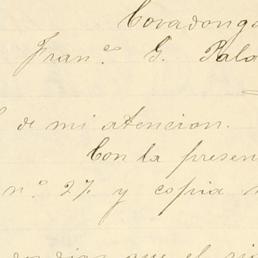 Covadonga
Fran.co G. Palo
de mi atencion.
Con la presen
n.o 27 y copia
dias que el